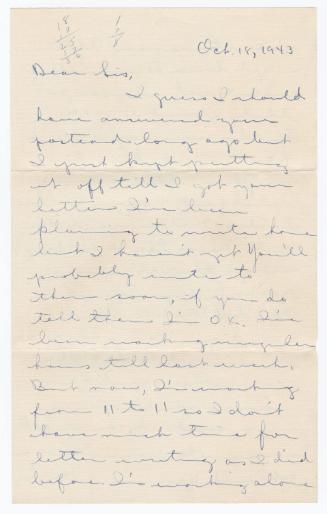 Oct. 18, 1943
Dear Sis,
I guess I should
have answered your
postcards long ago but
I just kept putting
it off till I got your
letter. I've been
planning to write home
but I haven't yet. You'll
probably write to
them soon, if you do
tell them I'm O.K. I've
been working irregular
hours till last week.
But now, I'm working
from 11 to 11 so I don't
have much time for
letter writing as I did
before. I'm working alone